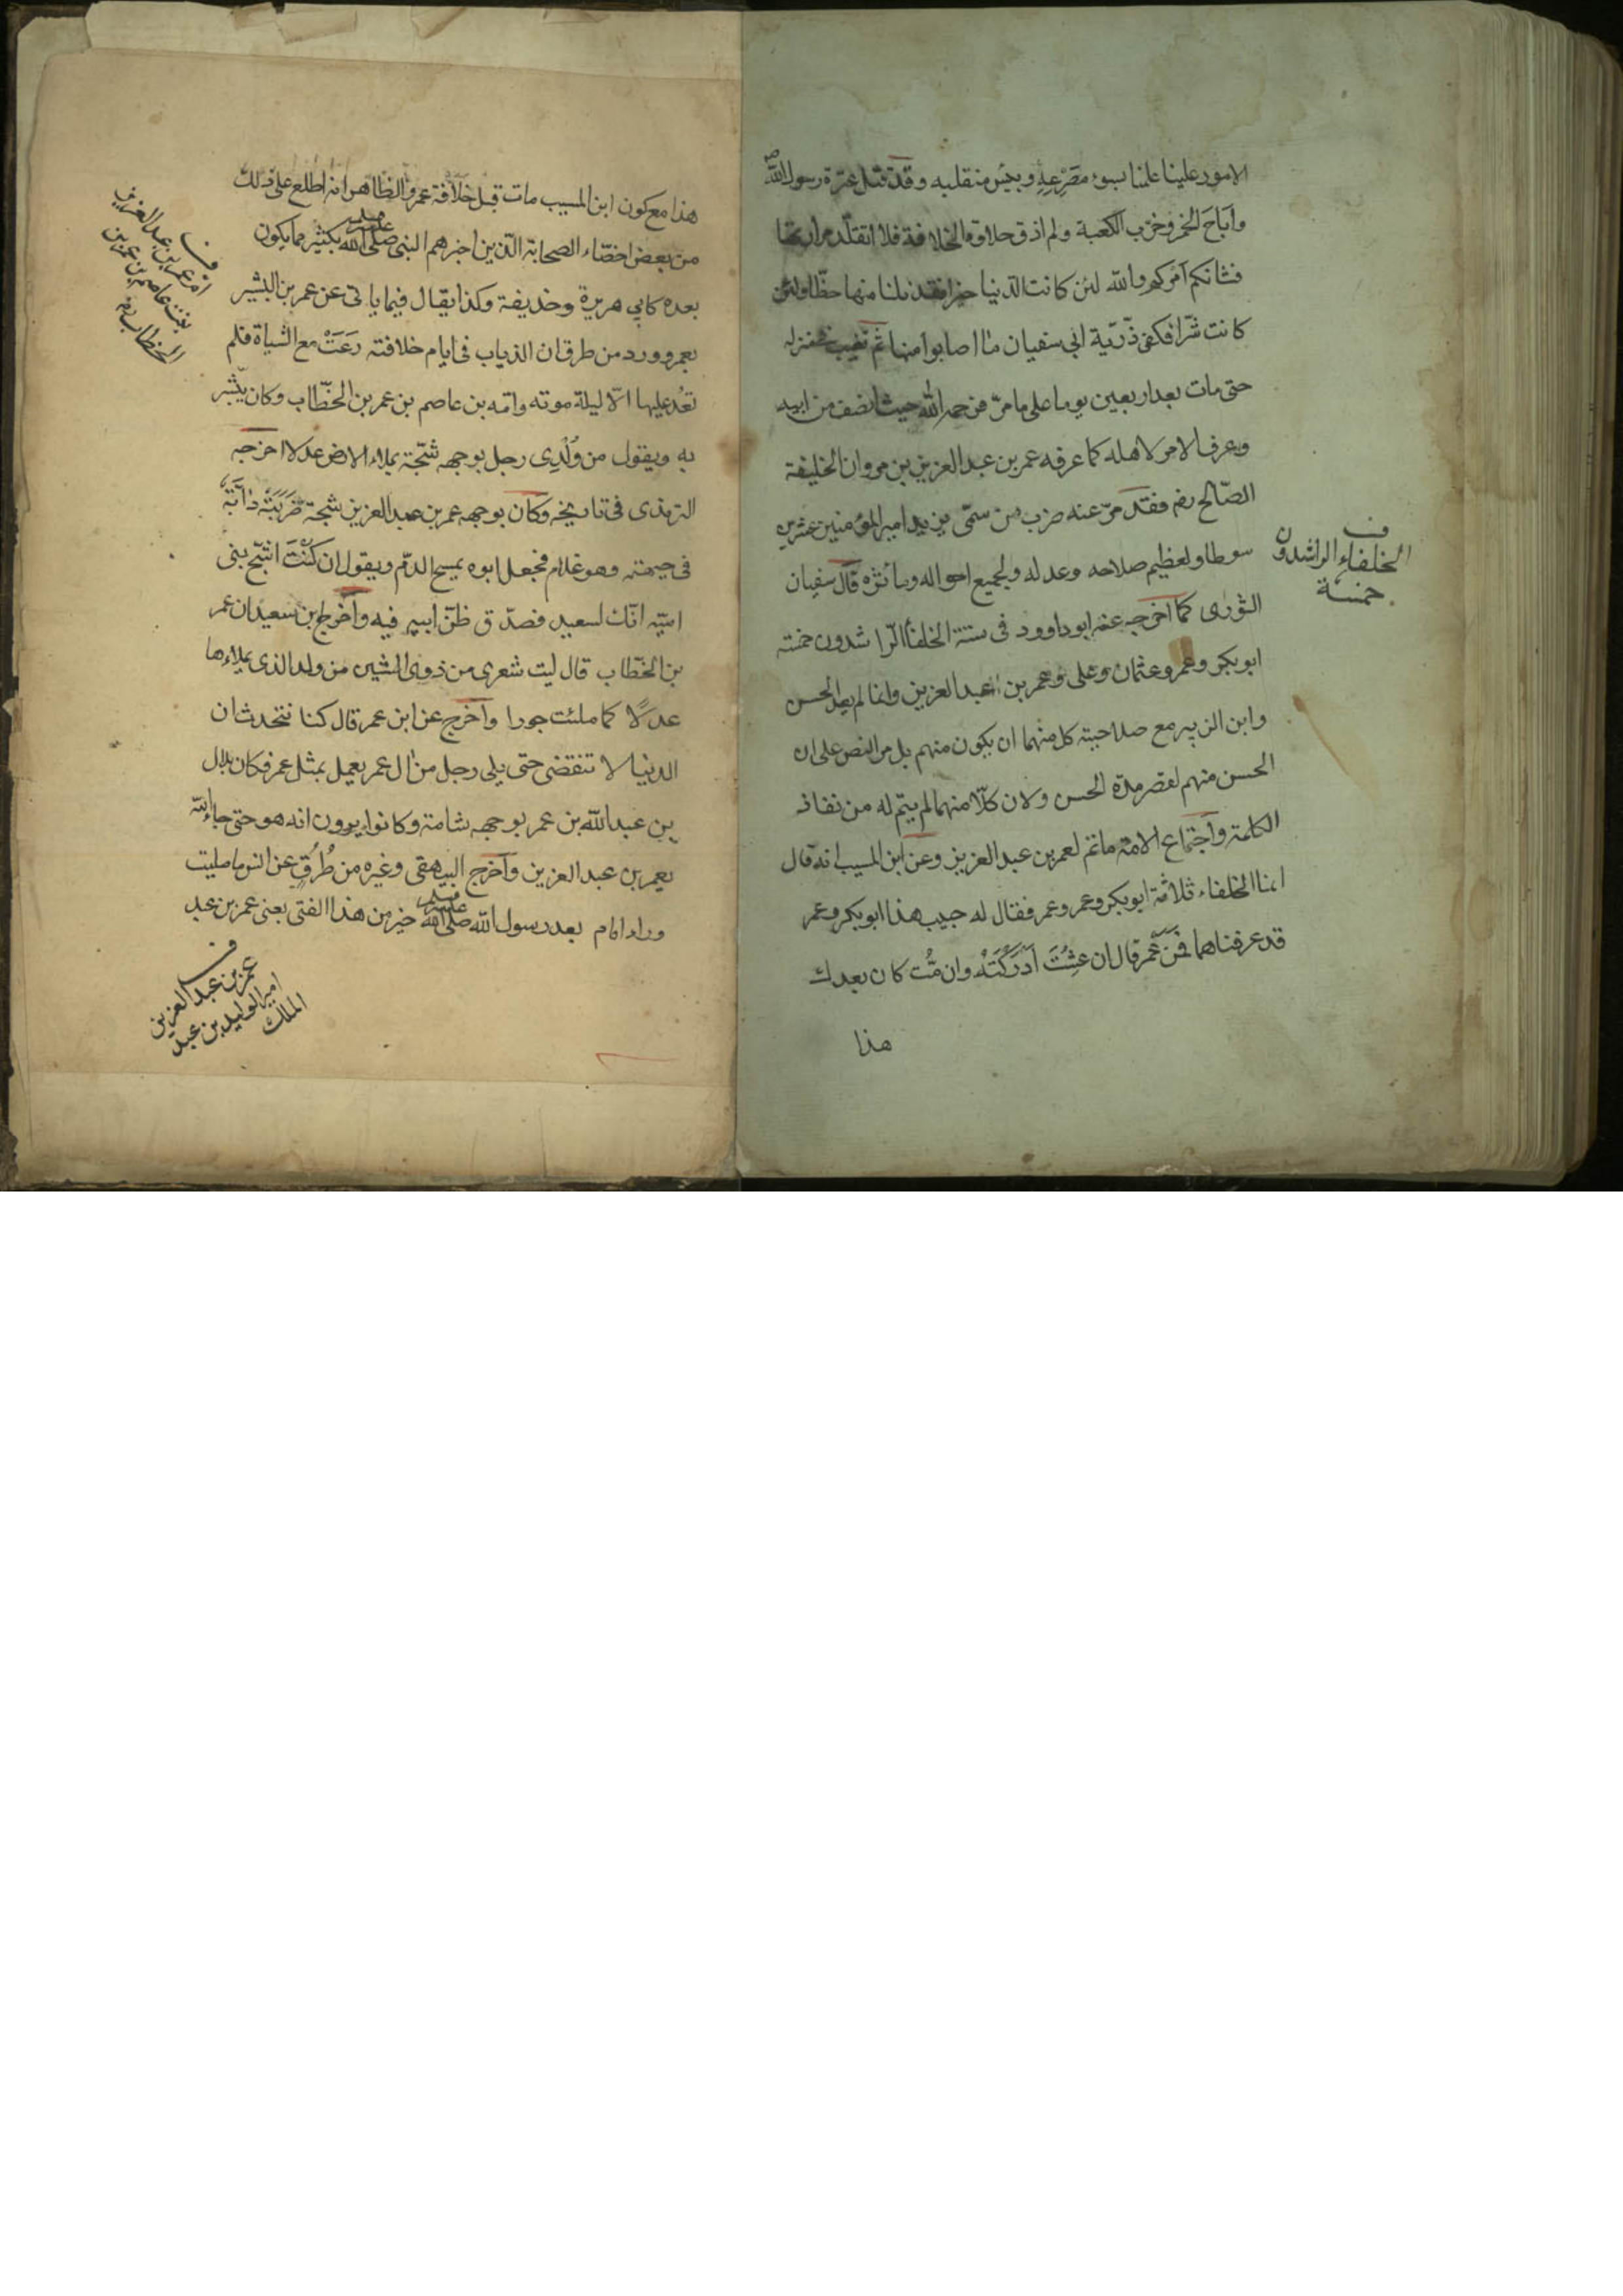 الامور علينا علمنا بسوء مصرعه وبئس منقلبه وقد قتل عترة رسول الله
وأباح الخمر وخرب الكعبة ولم اذق حلاوة الخلافة فلا اتقلد مرارتها
فشانكم أمركم والله لئن كانت الدنيا خيرا فقد نلنا منها حظا ولئن
كانت شرا فكفى ذرّيّة ابى سفيان ما اصابوا منها ثم تغيب فى منزله
حتى مات بعد اربعين يوما على ما مرّ فرحمه الله حيث انصف من ابيه
وعرف الامر لاهله كما عرفه عمر بن عبد العزيز بن مروان الخليفة
الصّالح رضه فقد مرّ عنه ضرب من سمّى يزيد امير المؤمنين عشرين
سوطا ولعظيم صلاحه وعدله ولجميع احواله ومآثره قال سفيان
الثورى كما اخرجه عنه ابو داوود فى سننه الخلفأ الرّاشدون خمسة
ابو بكر وعمر وعثمان وعلى وعمر بن عبد العزيز وانما لم يعد الحسن
وابن الزبير مع صلاحية كل منهما ان يكون منهم بل مر النص على ان
الحسن منهم لقصر مدة الحسن ولان كلّا منهما لم يتم له من نفاذ
الكلمة واجتماع الامة ماتم لعمر بن عبد العزيز وعن ابن المسيب انه قال
انما الخلفاء ثلاثة ابو بكر وعمر وعمر فقال له حبيب هذا ابو بكر وعمر
قد عرفناهما فمن عمر قال ان عشت أدركته وان متّ كان بعدك
هذا
ف
الخلفاء الراشدون
خمسة
هذا مع كون ابن المسيب مات قبل خلافة عمر والظاهر انه اطلع على ذلك
من بعض اخصّاء الصحابة الّذين اخبرهم النبى صلى الله عليه وسلم بكثير ما يكون
بعده كابى هريرة وحذيفة وكذا يقال فيما ياتى عن عمر بن البشير
بعمر وورد من طرق ان الذياب فى ايام خلافته رعت مع الشياة فلم
تعد عليها الّا ليلة موته وامّه بن عاصم بن عمر بن الخطّاب وكان يبشّر
به ويقول من ولدى رجل بوجهه شجّة يملاء الارض عدلا اخرجه
الترمذى فى تاريخه وكان بوجهه عمر بن عبد العزيز شجة ضربته دآبّة
فى جبهته وهو غلام فجعل ابوه يمسح الدّم ويقول ان كنت اشجّ بنى
اميّه انّك لسعيد فصدّق ظنّ ابيه فيه وأخرج ابن سعيد ان عمر
بن الخطّاب قال ليت شعرى من ذوى الشين من ولد الذى يملاءها
عدلًا كما ملئت جورا وأخرج عن ابن عمر قال كنا نتحدث ان
الدنيا لا تنقضى حتى يلى رجل من ال عمر يعمل بمثل عمر فكان بلال
بن عبد الله بن عمر بوجهه شامة وكانوا يرون انه هو حتى جاء الله
بعمر بن عبد العزيز وأخرج البيهقى وغيره من طرق عن انس ما صليت
وراء امام بعد رسول الله صلى الله عليه وسلم خير من هذا الفتى يعنى عمر بن عبد
ف
ام عمر بن عبد العزيز
بنت عاصم بن عمر بن
الخطاب رضه
ف
عمر بن عبد العزيز
امير الوليد بن عبد
الملك